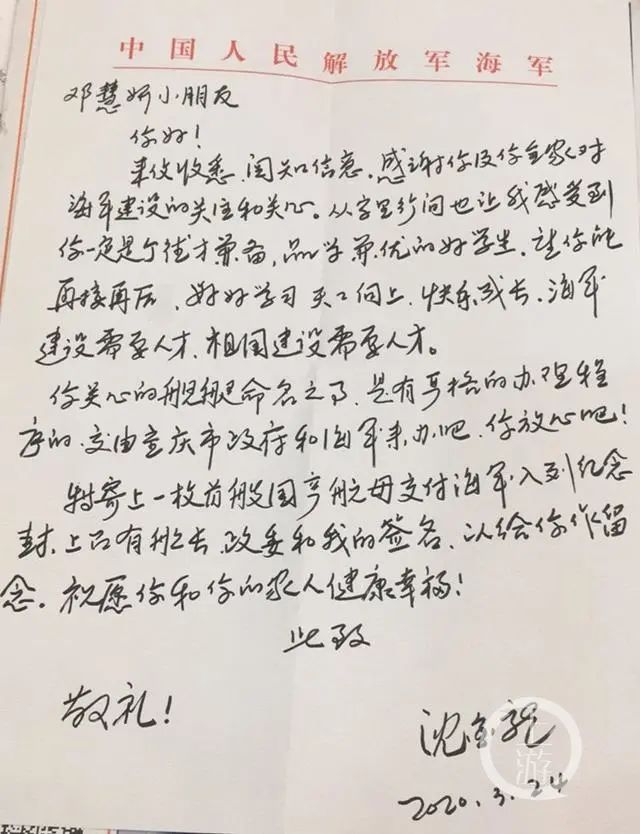 中国人民解放军海军
邓慧妍小朋友
你好!
来信收悉、阅知信息。感谢你及你全家对
海军建设的关注和关心。从字里行间也让我感受到
你一定是个德才兼备,品学兼优的好学生,望你能
再接再厉、好好学习天天向上、快乐成长、海军
建设需要人才、祖国建设需要人才。
你关心的舰艇命名之事、是有严格的办理程
序的、交由重庆市政府和海军来办吧、你放心吧!
特寄上一枚首艘国产航母交付海军入列纪念
封、上面有舰长、政委和我的签名、以给你作留
念。祝愿你和你的家人健康幸福!
此致
敬礼!
沈金龙
2020.3.24
上游